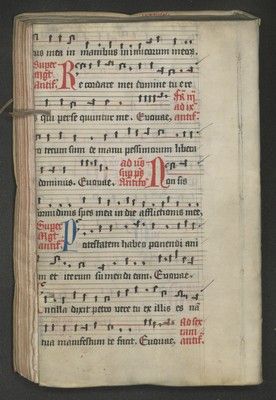 us mea in manibus inimicorum meorum.
Super
Mgt
antif. Recordare mei domine tu ere
s qui perse quuntur me. Euouae. antif.
ro tecum sum de manu pessimorum libera
dominus. Euouae. Non sis
formidinis spes mea in die afflictionis mee.
Super
Mgt
antif. Potestatem habeo ponendi ani
m et iterum sumendi eam. Euouae.
ncilla dixit petro vere tu ex illis es na
tua manifestum te facit. Euouae. antif.